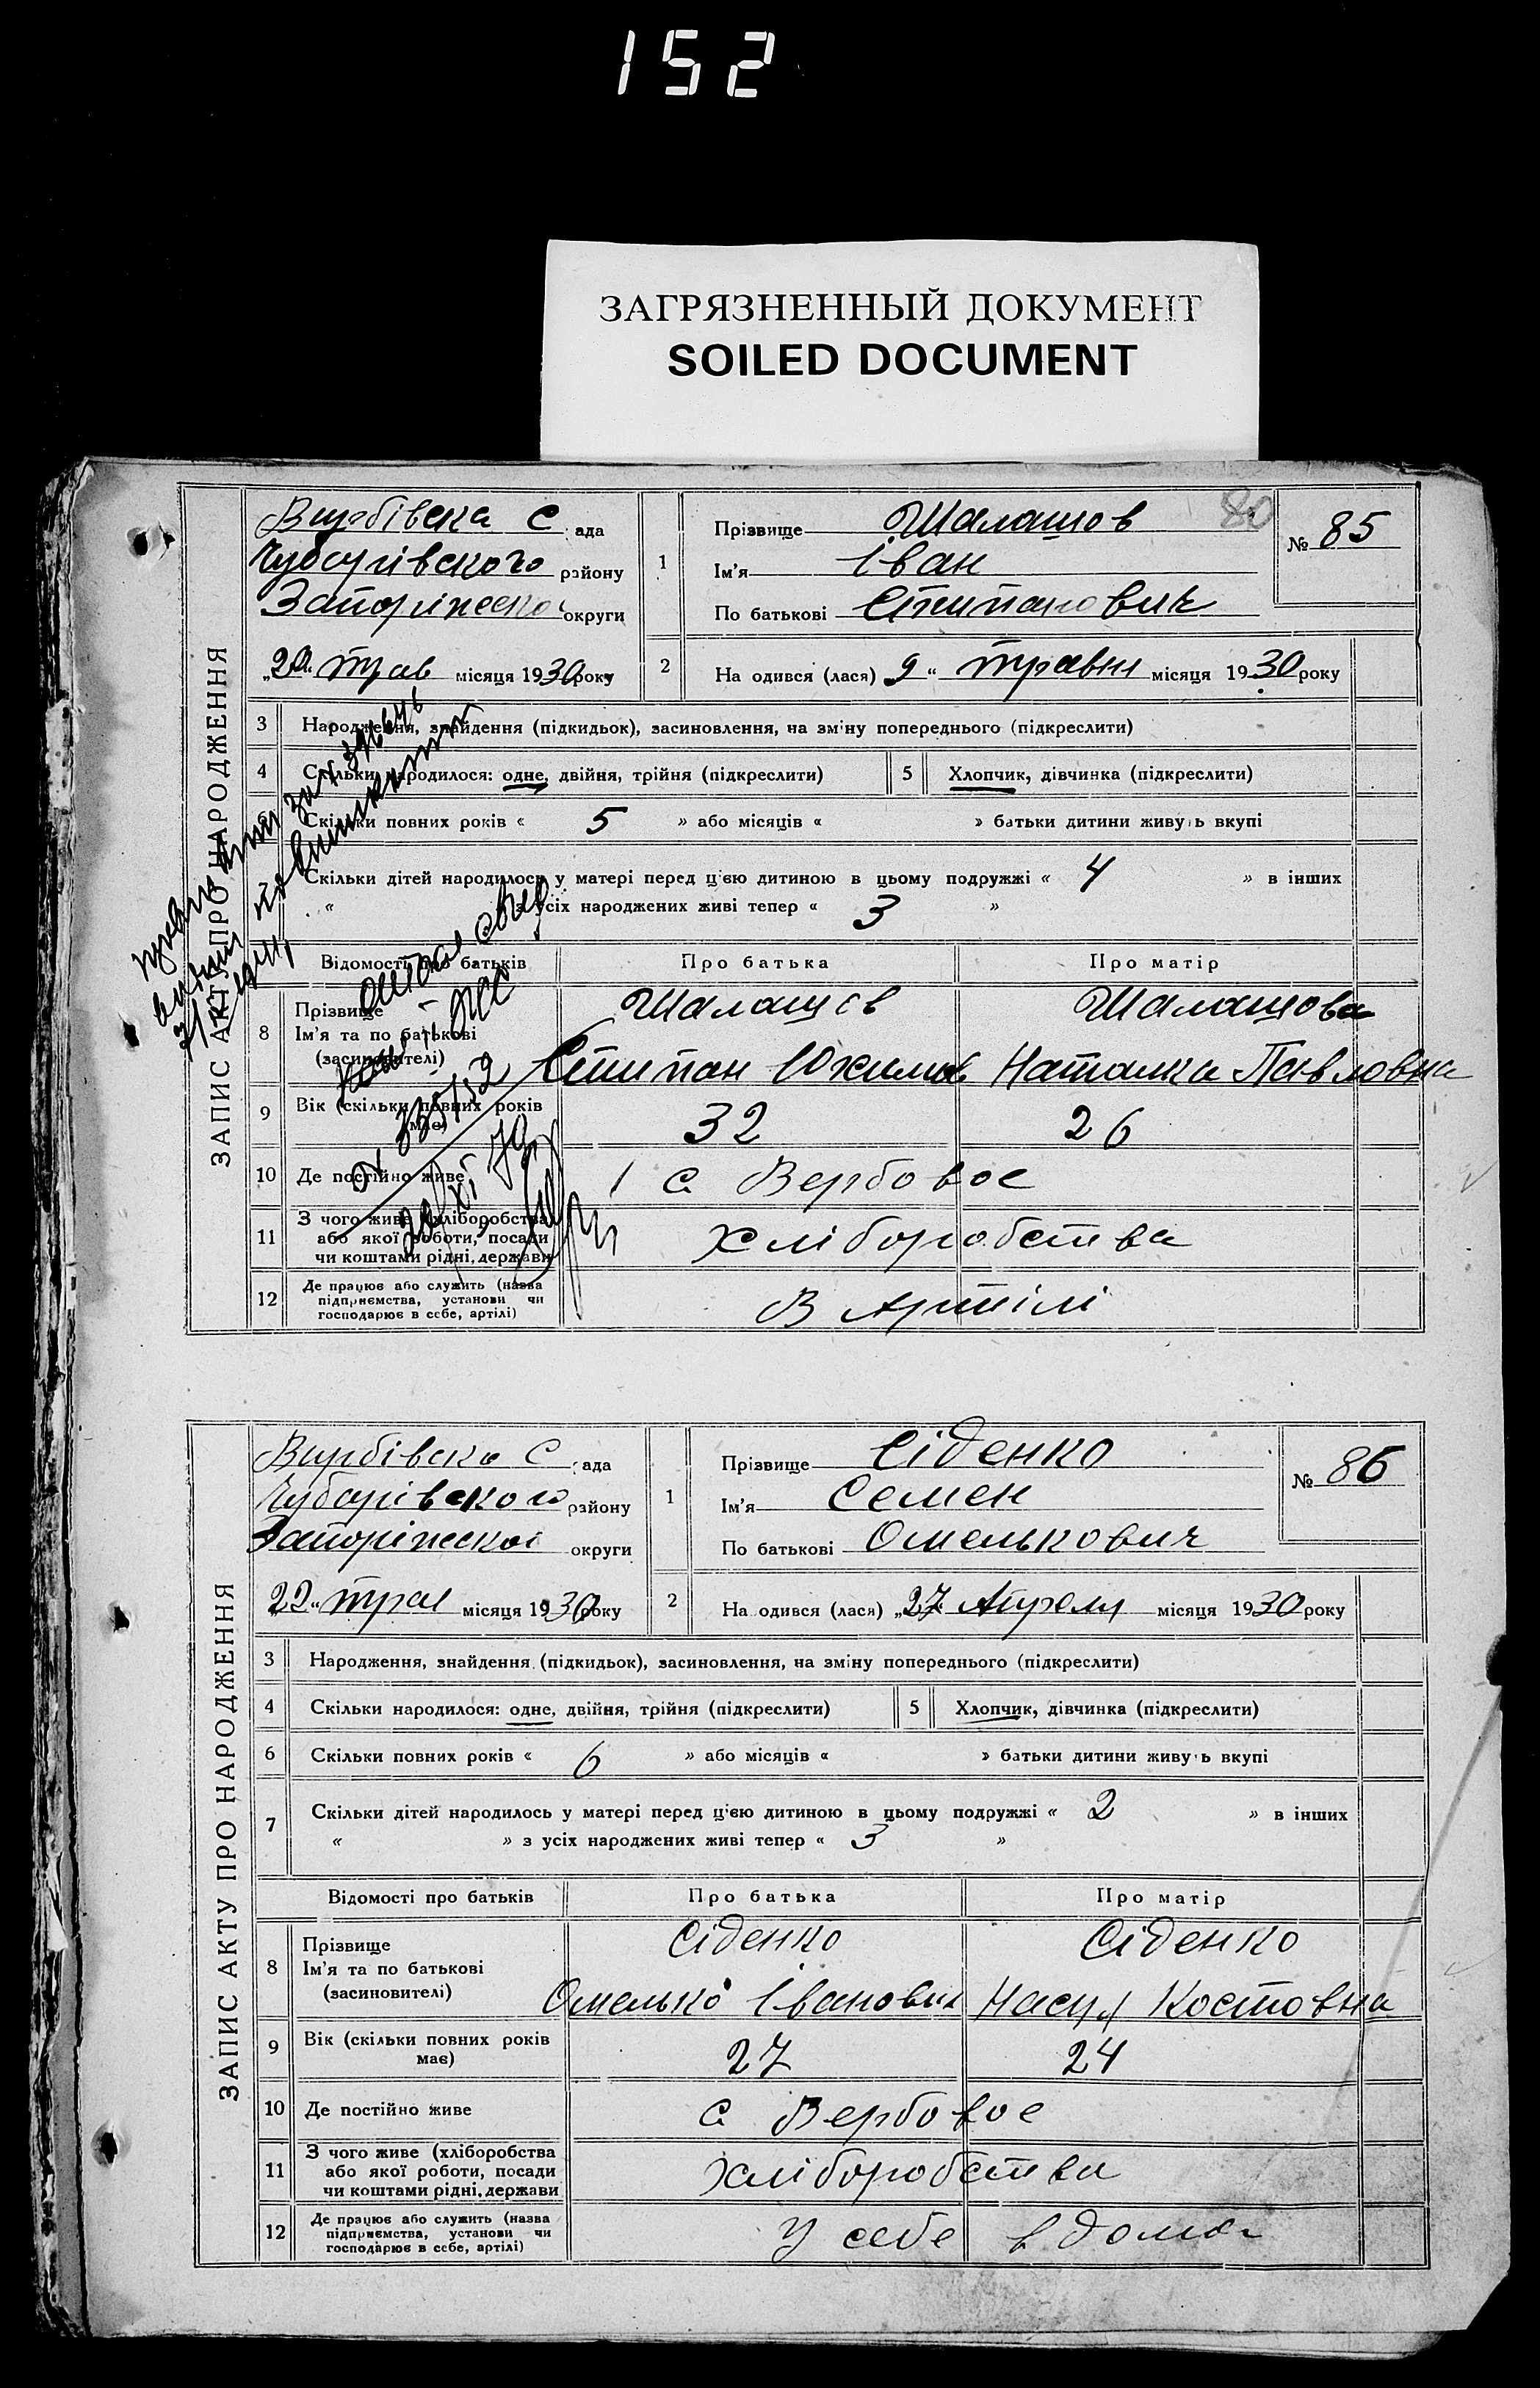 152
ЗАГРЯЗНЕННЫЙ ДОКУМЕНТ
SOILED DOCUMENT
80
ЗАПИС АКТУ ПРО НАРОДЖЕННЯ
Вирбівска С ада
району
округи
1
Прізвище Шалашов
Ім'я Іван
По батькові Стипанович
№ 85
„20“ трав місяця 1930 року
2
На одився (лася) 9 “ травня місяця 1930 року
3 Народження, знайдення (підкидьок), засиновлення, на зміну попереднього (підкреслити)
4 Скільки народилося: одне, двійня, трійня (підкреслити)
5 Хлопчик, дівчинка (підкреслити)
Скільки повних років « 5 » або місяців « » батьки дитини живуть вкупі
Скільки дітей народилось у матері перед цією дитиною в цьому подружжі « 4 » в інших
« з усіх народжених живі тепер « 3 »
Відомості про батьків Про батька Про матір
8 Прізвище
Ім'я та по батькові
(засиновителі)
Шалашов Шалашова
Стипан Юхимов Наталка Павловна
9 Вік (скільки повних років має) 32 26
10 Де постійно живе с Вербовое
11 З чого живе (хліборобства
або якої роботи, посади
чи коштами рідні, держави
хліборобства
12 Де працює або служить (назва
підприємства, установи чи
господарює в себе, артілі)
В Артілі
ЗАПИС АКТУ ПРО НАРОДЖЕННЯ
Вирбівска С ада
району
округи
1
Прізвище Сіденко
Ім'я Семен
По батькові Омелькович
№ 86
22“ трав місяця 1930 року
2
На одився (лася) „27 Апреля місяця 1930 року
3 Народження, знайдення (підкидьок), засиновлення, на зміну попереднього (підкреслити)
4 Скільки народилося: одне, двійня, трійня (підкреслити)
5 Хлопчик, дівчинка (підкреслити)
6 Скільки повних років « 6 » або місяців « » батьки дитини живуть вкупі
7 Скільки дітей народилось у матері перед цією дитиною в цьому подружжі « 2 » в інших
« » з усіх народжених живі тепер « 3 »
Відомості про батьків Про батька Про матір
8 Прізвище
Ім'я та по батькові
(засиновителі)
Сіденко Сіденко
Омелько Іванович Костовна
9 Вік (скільки повних років має) 27 24
10 Де постійно живе с Вербовое
11 З чого живе (хліборобства
або якої роботи, посади
чи коштами рідні, держави
хліборобства
12 Де працює або служить (назва
підприємства, установи чи
господарює в себе, артілі)
У себе в дома